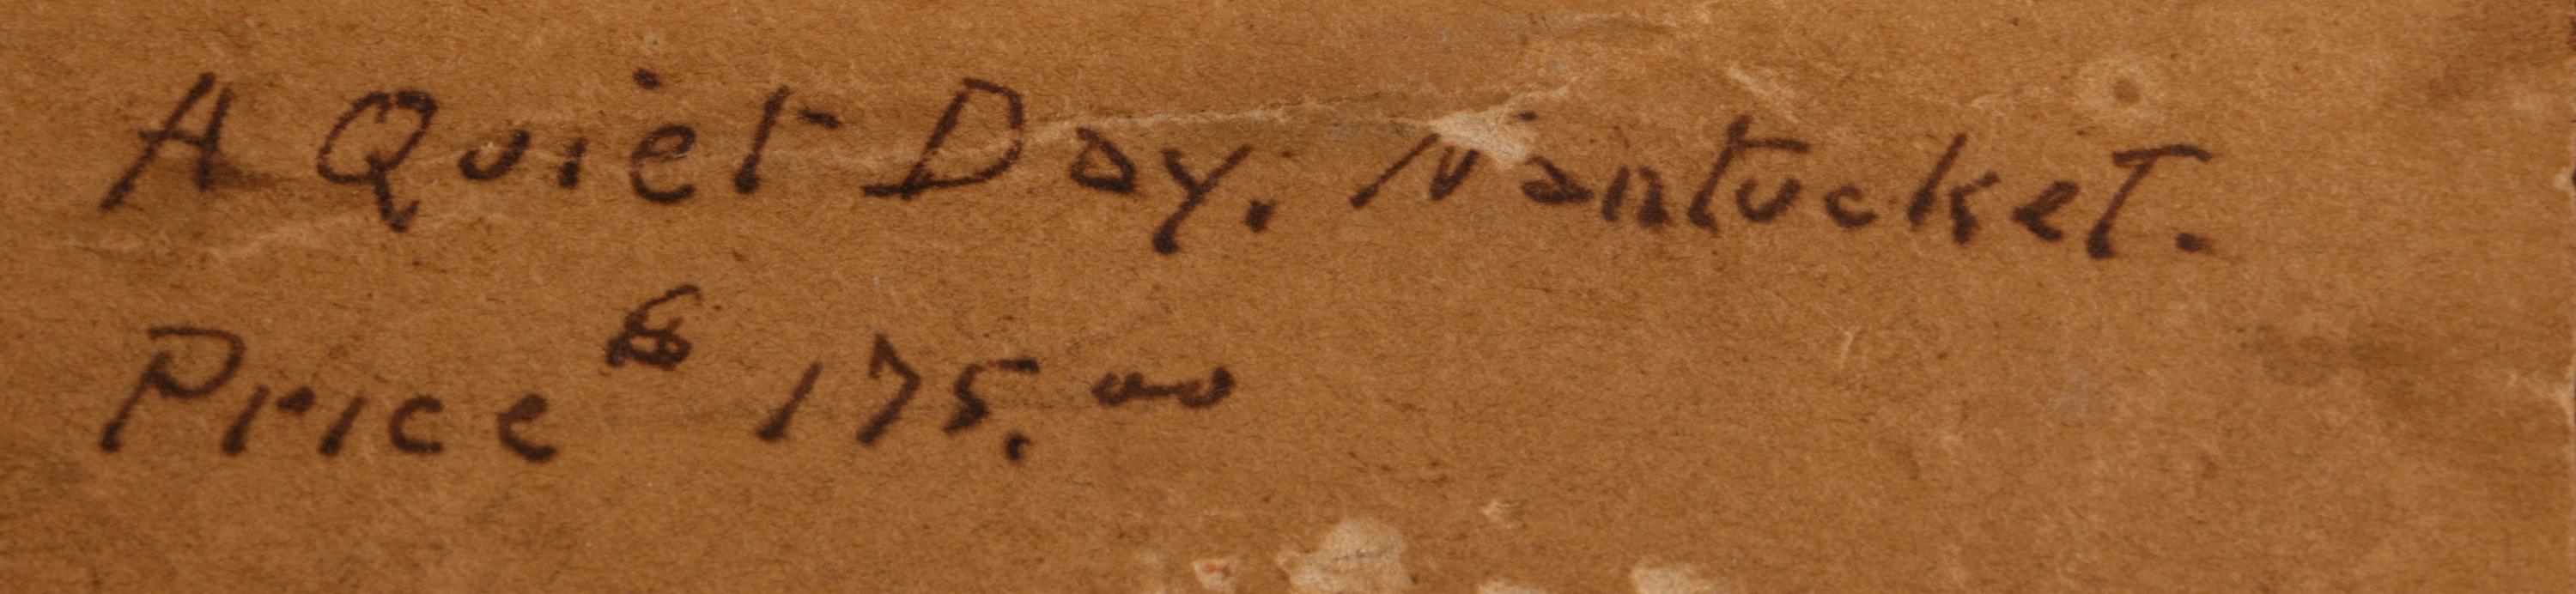 A Quiet Day. Nantucket.
Price $ 175.00